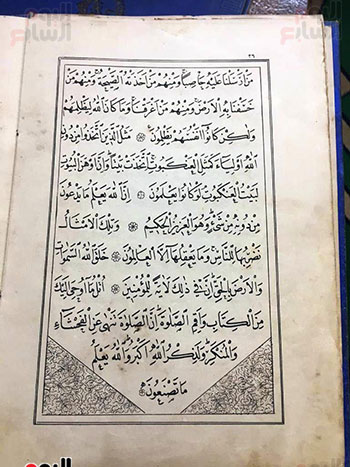 ٢٦
مَنْ اَرْسَلْنَا عَلَيْهِ حَاصِبًا وَمِنْهُمْ مَنْ اَخَذَتْهُ الصَّيْحَةُ وَمِنْهُمْ مَنْ
خَسَفْنَا بِهِ الْاَرْضَ وَمِنْهُمْ مَنْ اَغْرَقْنَا وَمَا كَانَ اللهُ لِيَظْلِمَهُمْ
وَلٰكِنْ كَانُوا اَنْفُسَهُمْ يَظْلِمُونَ مَثَلُ الَّذِينَ اتَّخَذُوا مِنْ دُونِ
اللهِ اَوْلِيَاءَ كَمَثَلِ الْعَنْكَبُوتِ اِتَّخَذَتْ بَيْتًا وَاِنَّ اَوْهَنَ الْبُيُوتِ
لَبَيْتُ الْعَنْكَبُوتِ لَوْ كَانُوا يَعْلَمُونَ اِنَّ اللهَ يَعْلَمُ مَا يَدْعُونَ
مِنْ دُونِهِ مِنْ شَيْءٍ وَهُوَ الْعَزِيزُ الْحَكِيمُ وَتِلْكَ الْاَمْثَالُ
نَضْرِبُهَا لِلنَّاسِ وَمَا يَعْقِلُهَا اِلَّا الْعَالِمُونَ خَلَقَ اللهُ السَّمٰوَاتِ
وَالْاَرْضَ بِالْحَقِّ اِنَّ فِي ذٰلِكَ لَاٰيَةً لِلْمُؤْمِنِينَ اُتْلُ مَا اُوحِيَ اِلَيْكَ
مِنَ الْكِتَابِ وَاَقِمِ الصَّلٰوةَ اِنَّ الصَّلٰوةَ تَنْهٰى عَنِ الْفَحْشَاءِ
وَالْمُنْكَرِ وَلَذِكْرُ اللهِ اَكْبَرُ وَاللهُ يَعْلَمُ
مَا تَصْنَعُونَ
اليوم السابع